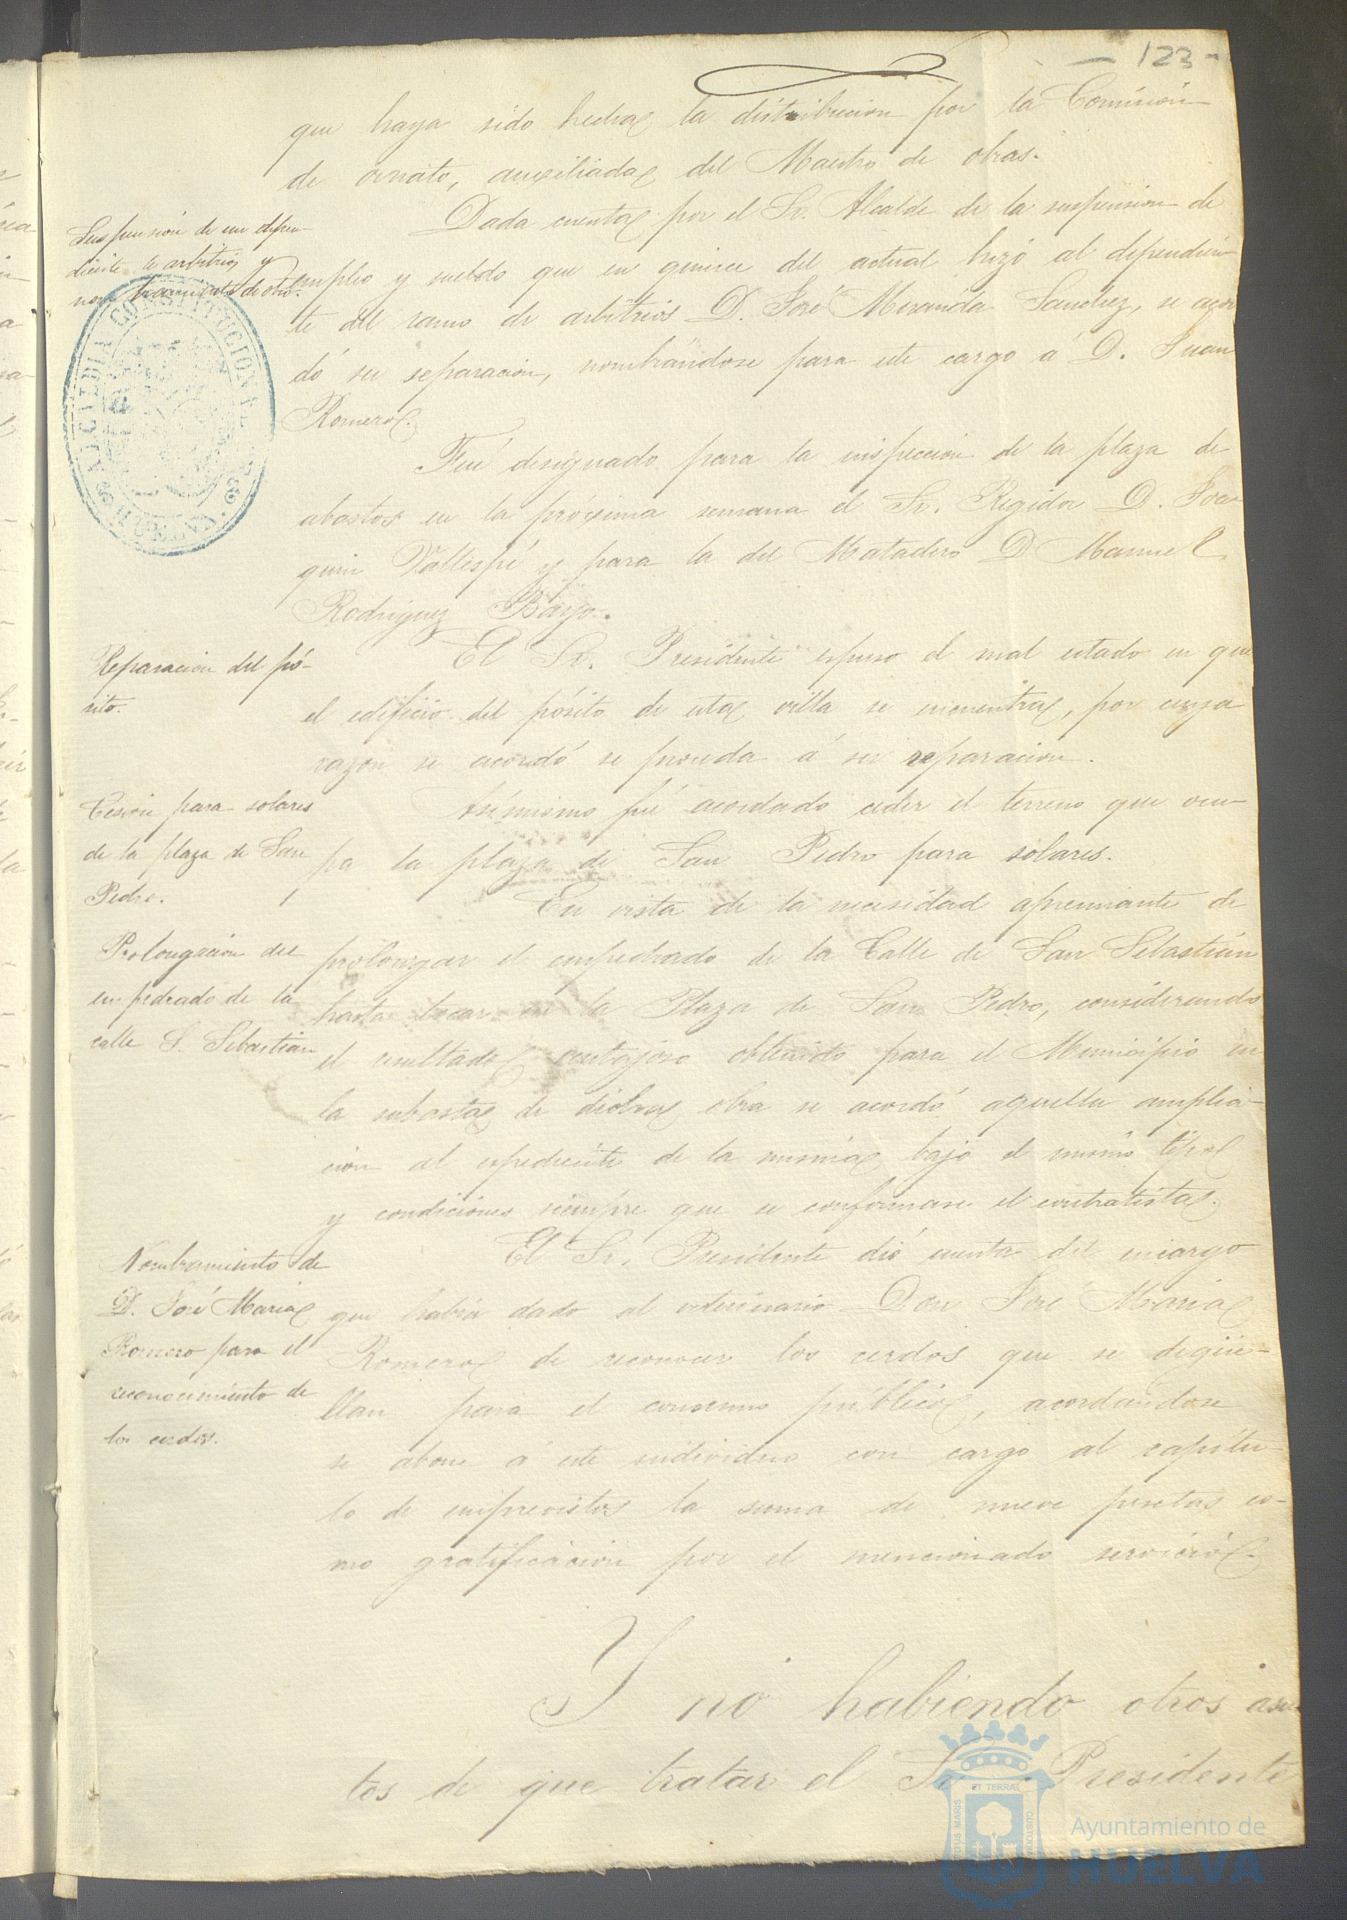 - 123 -
que haya sido hecha la distribucion por la Comisión
de ornato, auxiliada del Maestro de obras.
Suspensión de un depen-
diente de arbitrios y
nombramiento de otro.
Dada cuenta por el Sr. Alcalde de la suspension de
empleo y sueldo que en quince del actual hizo al dependien
te del ramo de arbitrios D. José Miranda Sanchez, se acor
dó su separacion, nombrándose para este cargo á D. Juan
Romero.
ALCALDIA CONSTITUCIONAL
HUELVA
Fué designado para la inspeccion de la plaza de
abastos en la próxima semana el Sr. Regidor D. Joa-
quin Vallespí y para la del Matadero D Manuel
Rodriguez Bayo.
Reparacion del pó-
sito.
El Sr. Presidente espuso el mal estado en que
el edificio del pósito de esta villa se encuentra, por cuya
razon se acordó se proceda á su reparacion.
Cesión para solares
de la plaza de San
Pedro.
Asímismo fué acordado ceder el terreno que ocu-
pa la plaza de San Pedro para solares.
Prolongacion del
empedrado de la
calle S. Sebastian
En vista de la necesidad apremiante de
prolongar el empedrado de la Calle de San Sebastián
hasta tocar en la Plaza de San Pedro, considerando
el resultado ventajoso obtenido para el Municipio en
la subasta de dicha obra se acordó aquella amplia-
cion al espediente de la misma bajo el mismo tipo
y condiciones siempre que se conformase el contratista.
Nombramiento de
D. José Maria
Romero para el
reconocimiento de
los cerdos.
El Sr. Presidente dió cuenta del encargo
que habia dado al veterinario Don José Maria
Romero de reconocer los cerdos que se degüe-
llan para el consumo público, acordandose
se abone á este individuo con cargo al capítu-
lo de imprevistos la suma de nueve pesetas co-
mo gratificacion por el mencionado servicio.
Y no habiendo otros asun
tos de que tratar el Sr. Presidente
ET TERRAE
PORTUS MARIS
CUSTODIA
Ayuntamiento de
HUELVA